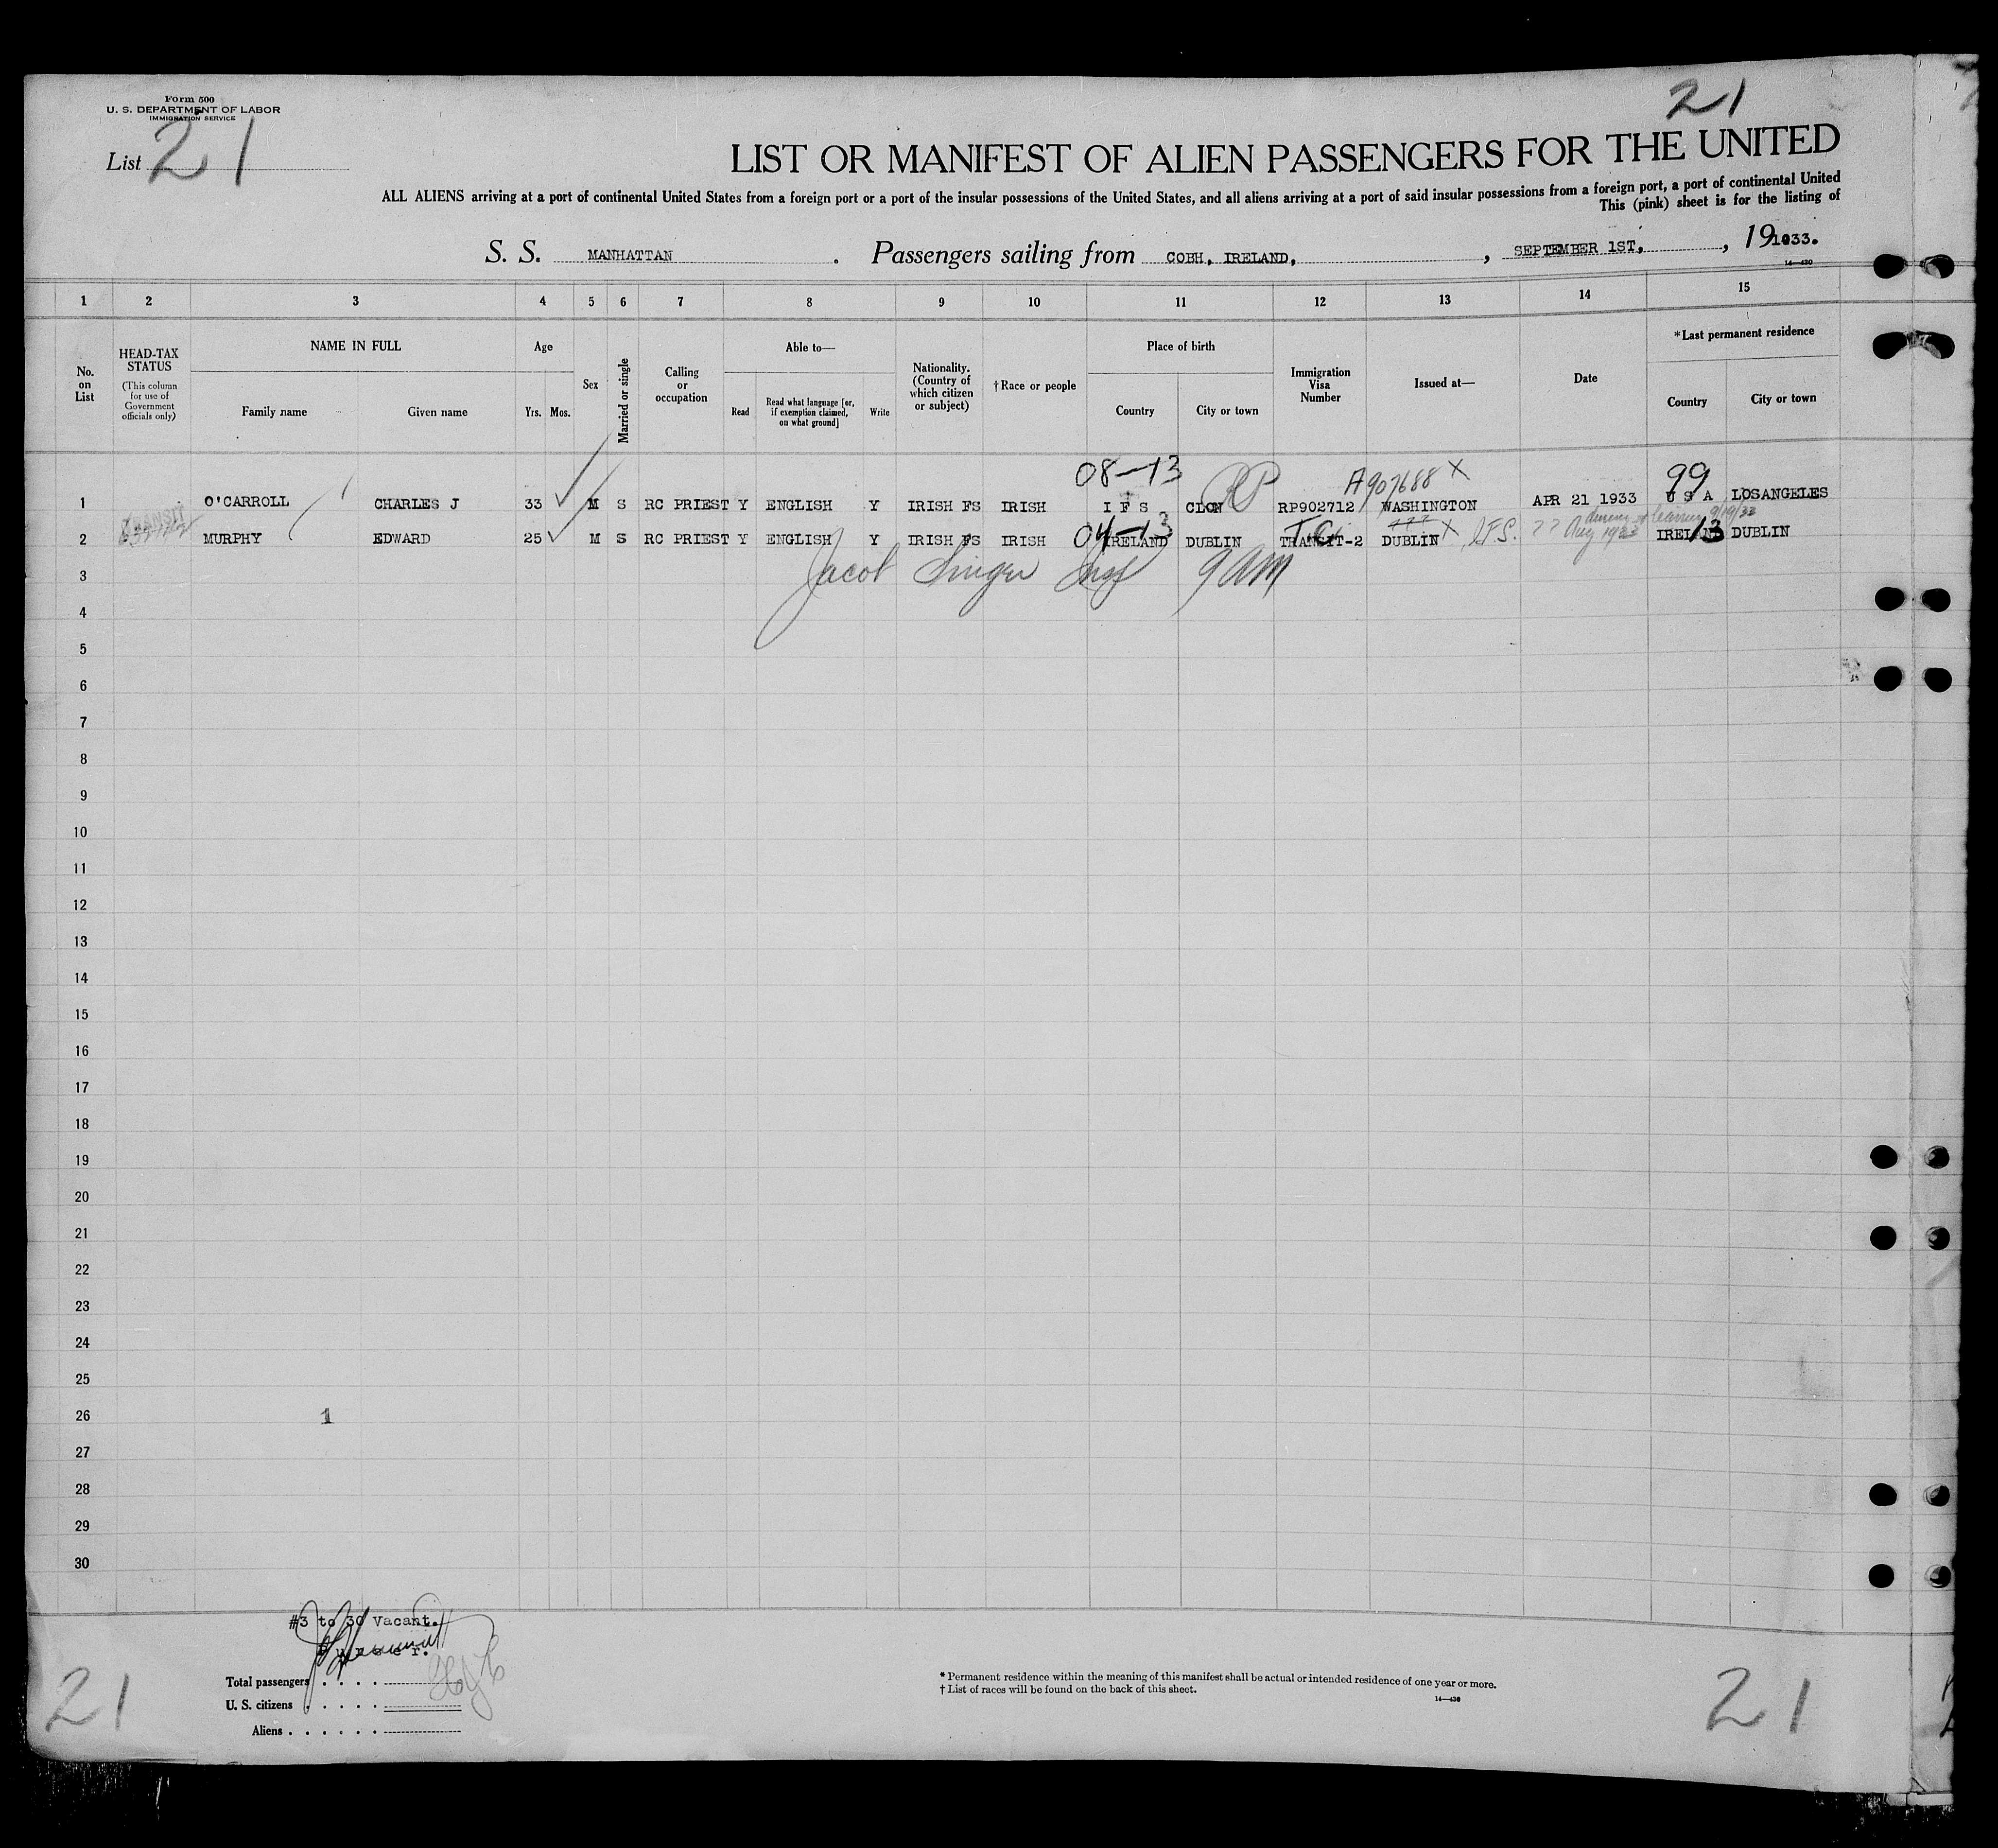 Form 500
U. S. DEPARTMENT OF LABOR
IMMIGRATION SERVICE
21
List 21
LIST OR MANIFEST OF ALIEN PASSENGERS FOR THE UNITED
ALL ALIENS arriving at a port of continental United States from a foreign port or a port of the insular possessions of the United States, and all aliens arriving at a port of said insular possessions from a foreign port, a port of continental United
This (pink) sheet is for the listing of
S. S. MANHATTAN. Passengers sailing from COBH, IRELAND, , SEPTEMBER 1ST, , 19 1933.
14—430
1 2 3 4 5 6 7 8 9 10 11 12 13 14 15
No. on List
HEAD-TAX STATUS
(This column for use of Government officials only)
NAME IN FULL
Family name
Given name
Age
Yrs. Mos.
Sex
Married or single
Calling or occupation
Able to—
Read
Read what language [or, if exemption claimed, on what ground]
Write
Nationality. (Country of which citizen or subject)
†Race or people
Place of birth
Country
City or town
Immigration Visa Number
Issued at—
Date
*Last permanent residence
Country
City or town
08-13 RP A907688 X 99
1 O'CARROLL CHARLES J 33 M S RC PRIEST Y ENGLISH Y IRISH FS IRISH I F S RP902712 WASHINGTON APR 21 1933 U S A LOSANGELES
TRANSIT 04-13 TC ??? X I.F.S. ?? Aug 1933 leaving 9/19/33 13
2 MURPHY EDWARD 25 M S RC PRIEST Y ENGLISH Y IRISH FS IRISH IRELAND DUBLIN TRANSIT-2 DUBLIN IRELAND DUBLIN
Jacob Singer Insp 9 AM
3
4
5
6
7
8
9
10
11
12
13
14
15
16
17
18
19
20
21
22
23
24
25
26 1
27
28
29
30
#3 to 30 Vacant.
Purser.
Total passengers . . . .
U. S. citizens . . . . .
Aliens . . . . . .
* Permanent residence within the meaning of this manifest shall be actual or intended residence of one year or more.
† List of races will be found on the back of this sheet.
14—430
21
21